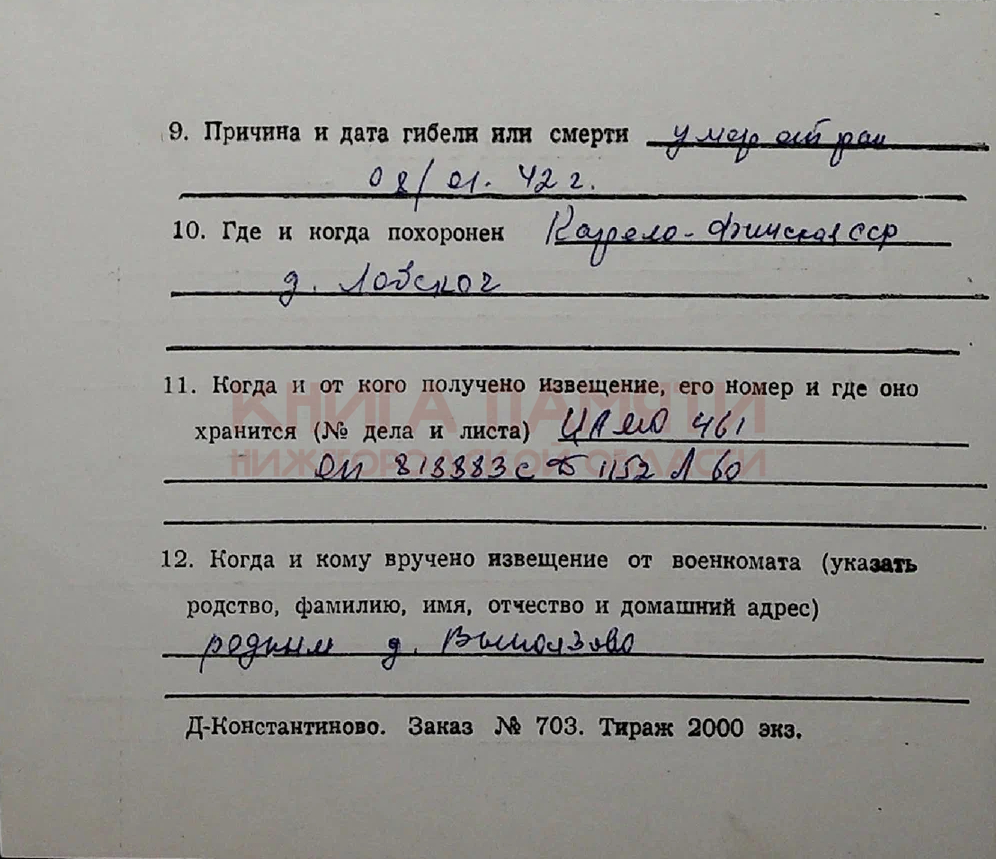 9. Причина и дата гибели или смерти умер от ран
08/01. 42 г.
10. Где и когда похоронен Карело-Финская ССР
д. Лобског
11. Когда и от кого получено извещение, его номер и где оно
КНИГА ПАМЯТИ
хранится (№ дела и листа) ЦАМО 461
НИЖЕГОРОДСКОЙ ОБЛАСТИ
оп 818883с д 1152 л 60
12. Когда и кому вручено извещение от военкомата (указать
родство, фамилию, имя, отчество и домашний адрес)
родным д. Выползово
Д-Константиново. Заказ № 703. Тираж 2000 экз.